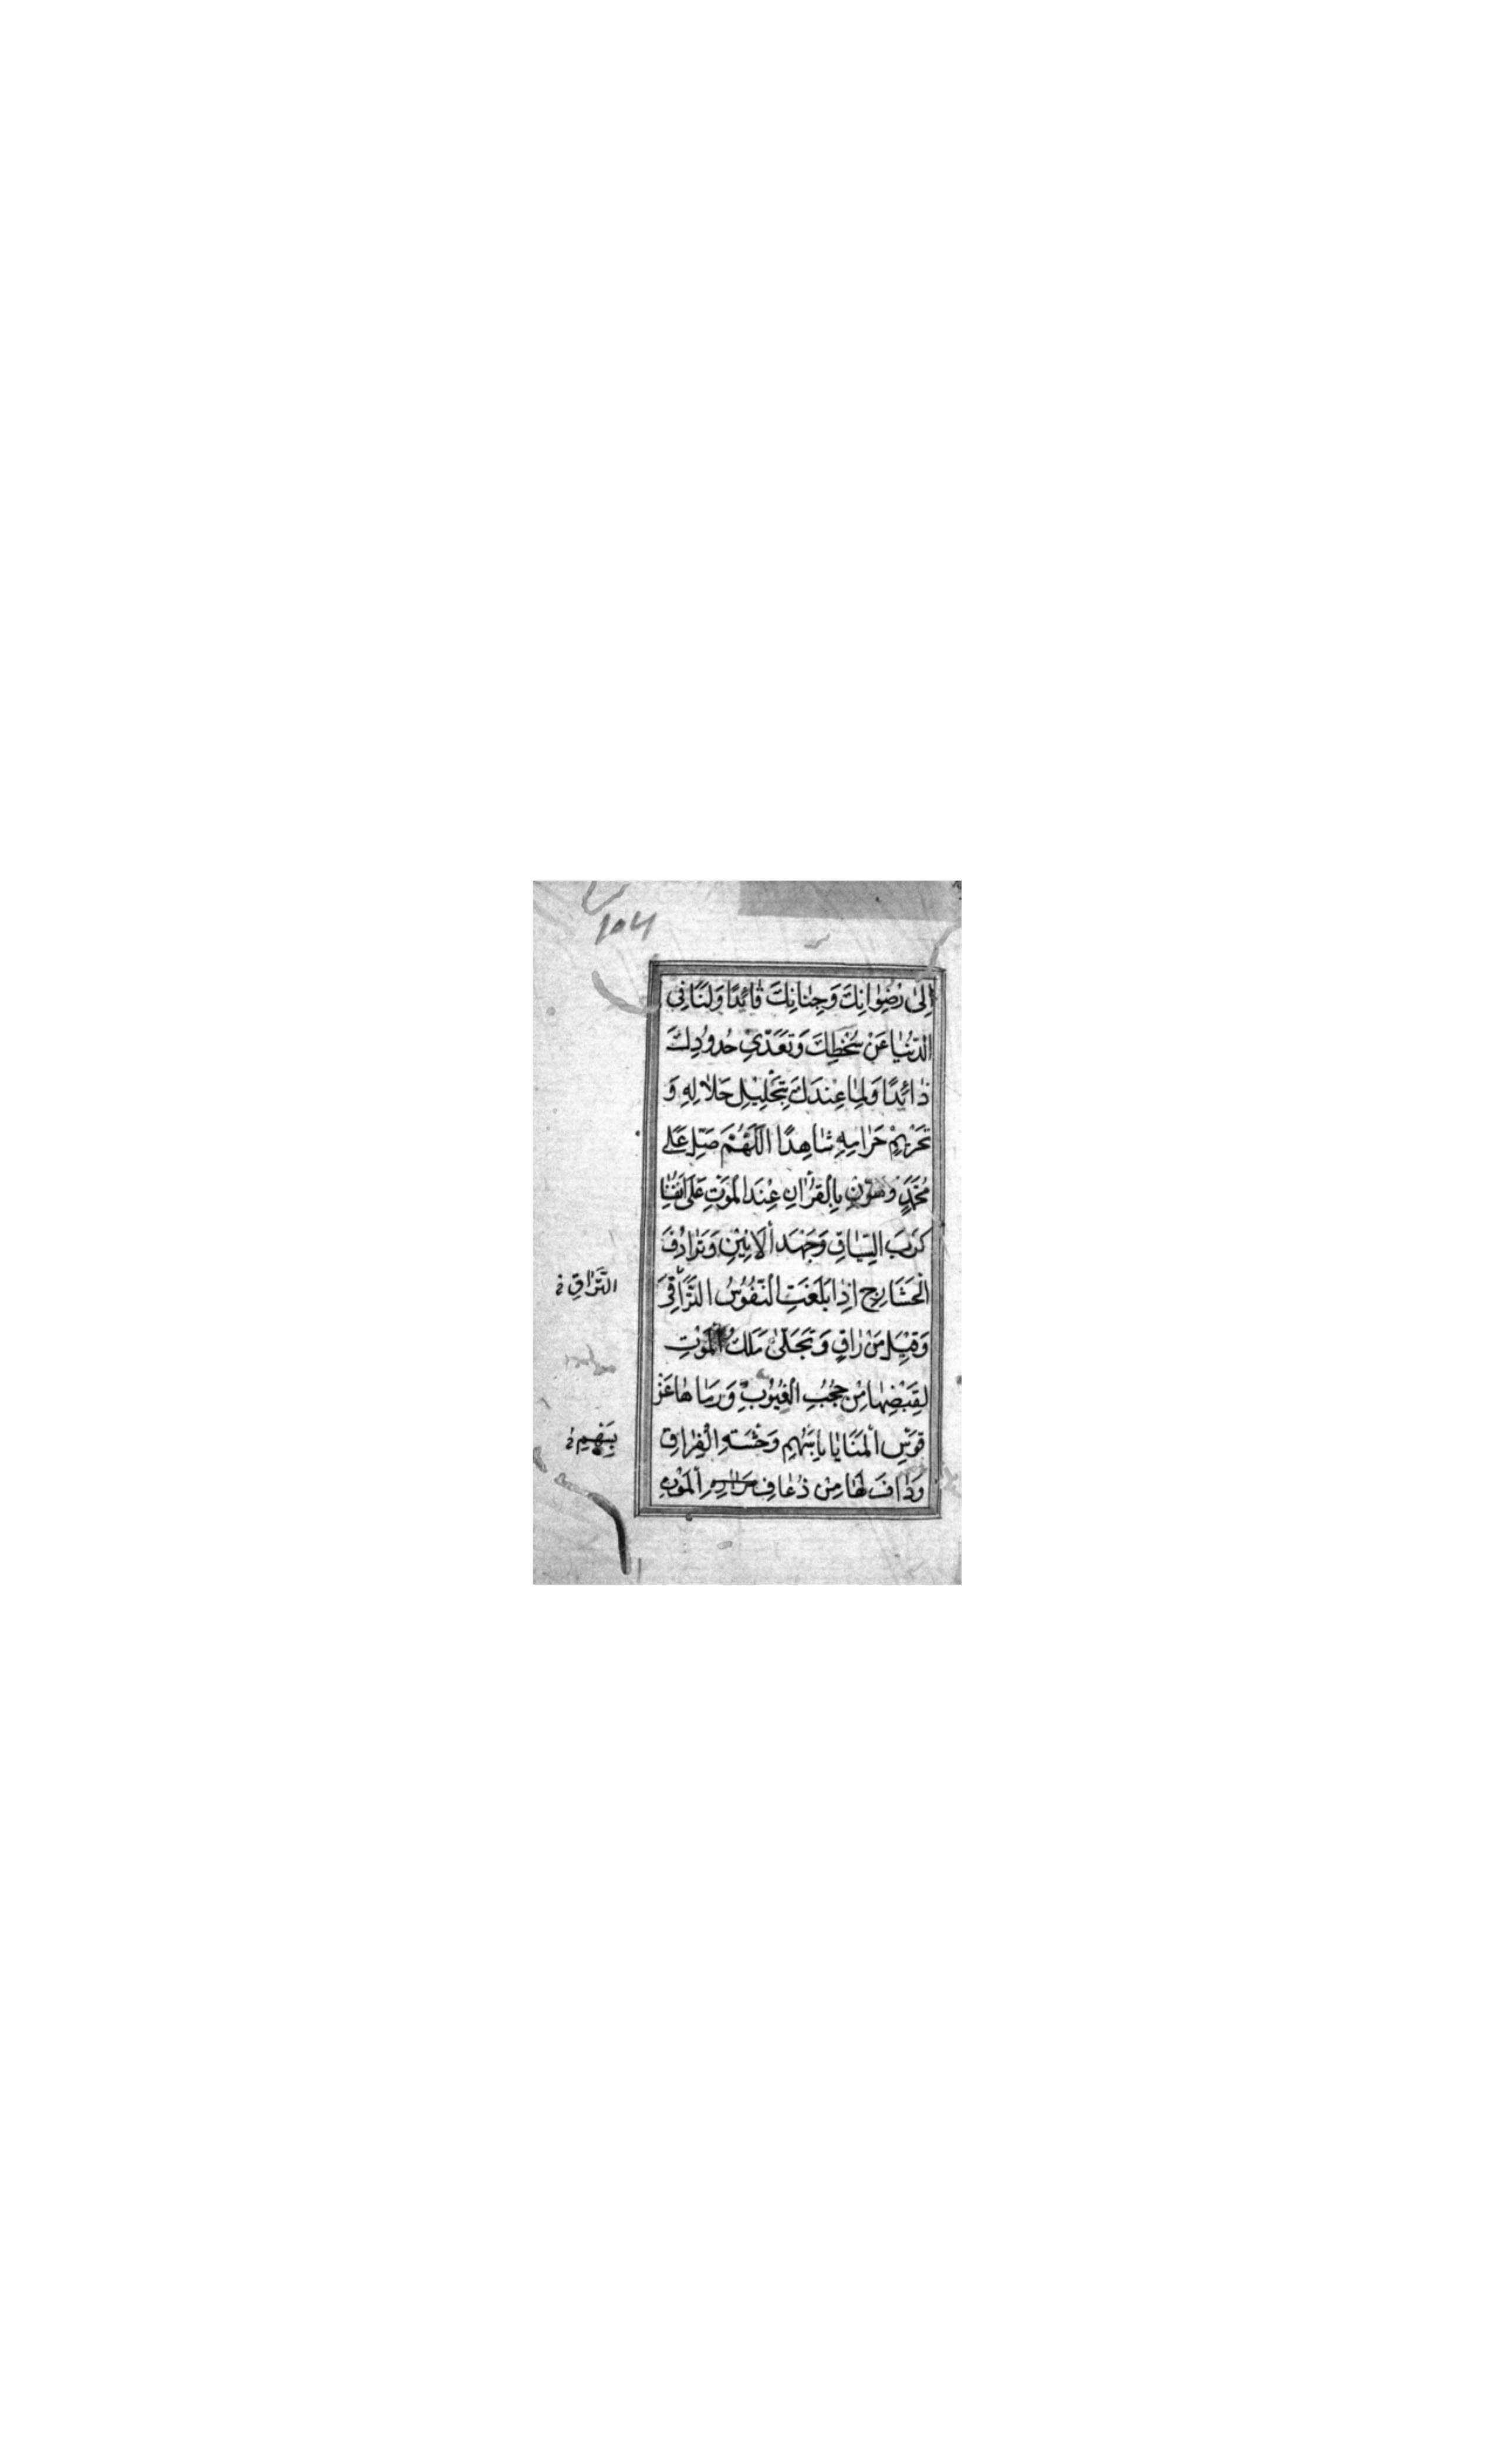 إِلىٰ رِضْوٰانِكَ وَجِنٰانِكَ قٰائِدًا وَلَنٰا فِى
الدُّنْيٰا عَنْ سُخْطِكَ وَتَعَدّى حُدُودِكَ
ذٰائِدًا وَلِمٰا عِنْدَكَ بِتَحْلِيْلِ حَلاٰلِهِ وَ
تَحْرِيْمِ حَرٰامِهِ شٰاهِدًا اَللّٰهُمَّ صَلِّ عَلىٰ
مُحَمَّدٍ وَهَوِّنْ بِالْقُرْاٰنِ عِنْدَ الْمَوْتِ عَلىٰ اَنْفُسِنٰا
كَرْبَ السِّيٰاقِ وَجَهْدَ اْلاَنِيْنِ وَتَرٰادُفَ
الْحَشٰارِجِ اِذٰا بَلَغَتِ النُّفُوْسُ التَّرٰاقِىَ
التَّرٰاقِ
وَقِيْلَ مَنْ رٰاقٍ وَتَجَلّىٰ مَلَكُ الْمَوْتِ
لِقَبْضِهٰا مِنْ حُجُبِ الْغُيُوْبِ وَرَمٰاهٰا عَنْ
قَوْسِ الْمَنٰايٰا بِاَسْهُمِ وَحْشَةِ الْفِرٰاقِ
بِسَهْمِ
وَدٰافَ لَهٰا مِنْ ذُعٰافِ مَرٰارَةِ الْمَوْتِ